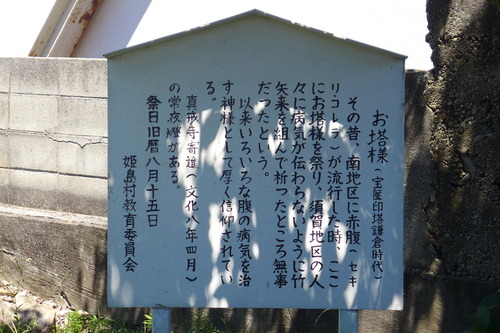 お塔様（宝篋印塔鎌倉時代）
その昔、南地区に赤腹（セキ
リ・コレラ）が流行した時、ここ
にお塔様を祭り、須賀地区の人
々に病気が伝わらないように竹
矢来を組んで祈ったところ無事
だったという。
以来いろいろな腹の病気を治
す神様として厚く信仰されてい
る。
真戒寺寄進（文化八年四月）
の常夜燈がある。
祭日旧暦八月十五日
姫島村教育委員会